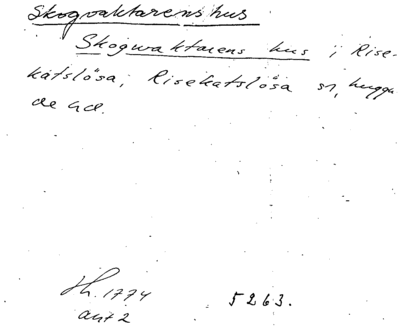 Skogvaktarens hus
Skogwaktarens hus i Rise-
katslösa, Risekatslösa sn, Luggu-
de hd.
Jb. 1774
art 2
5263.